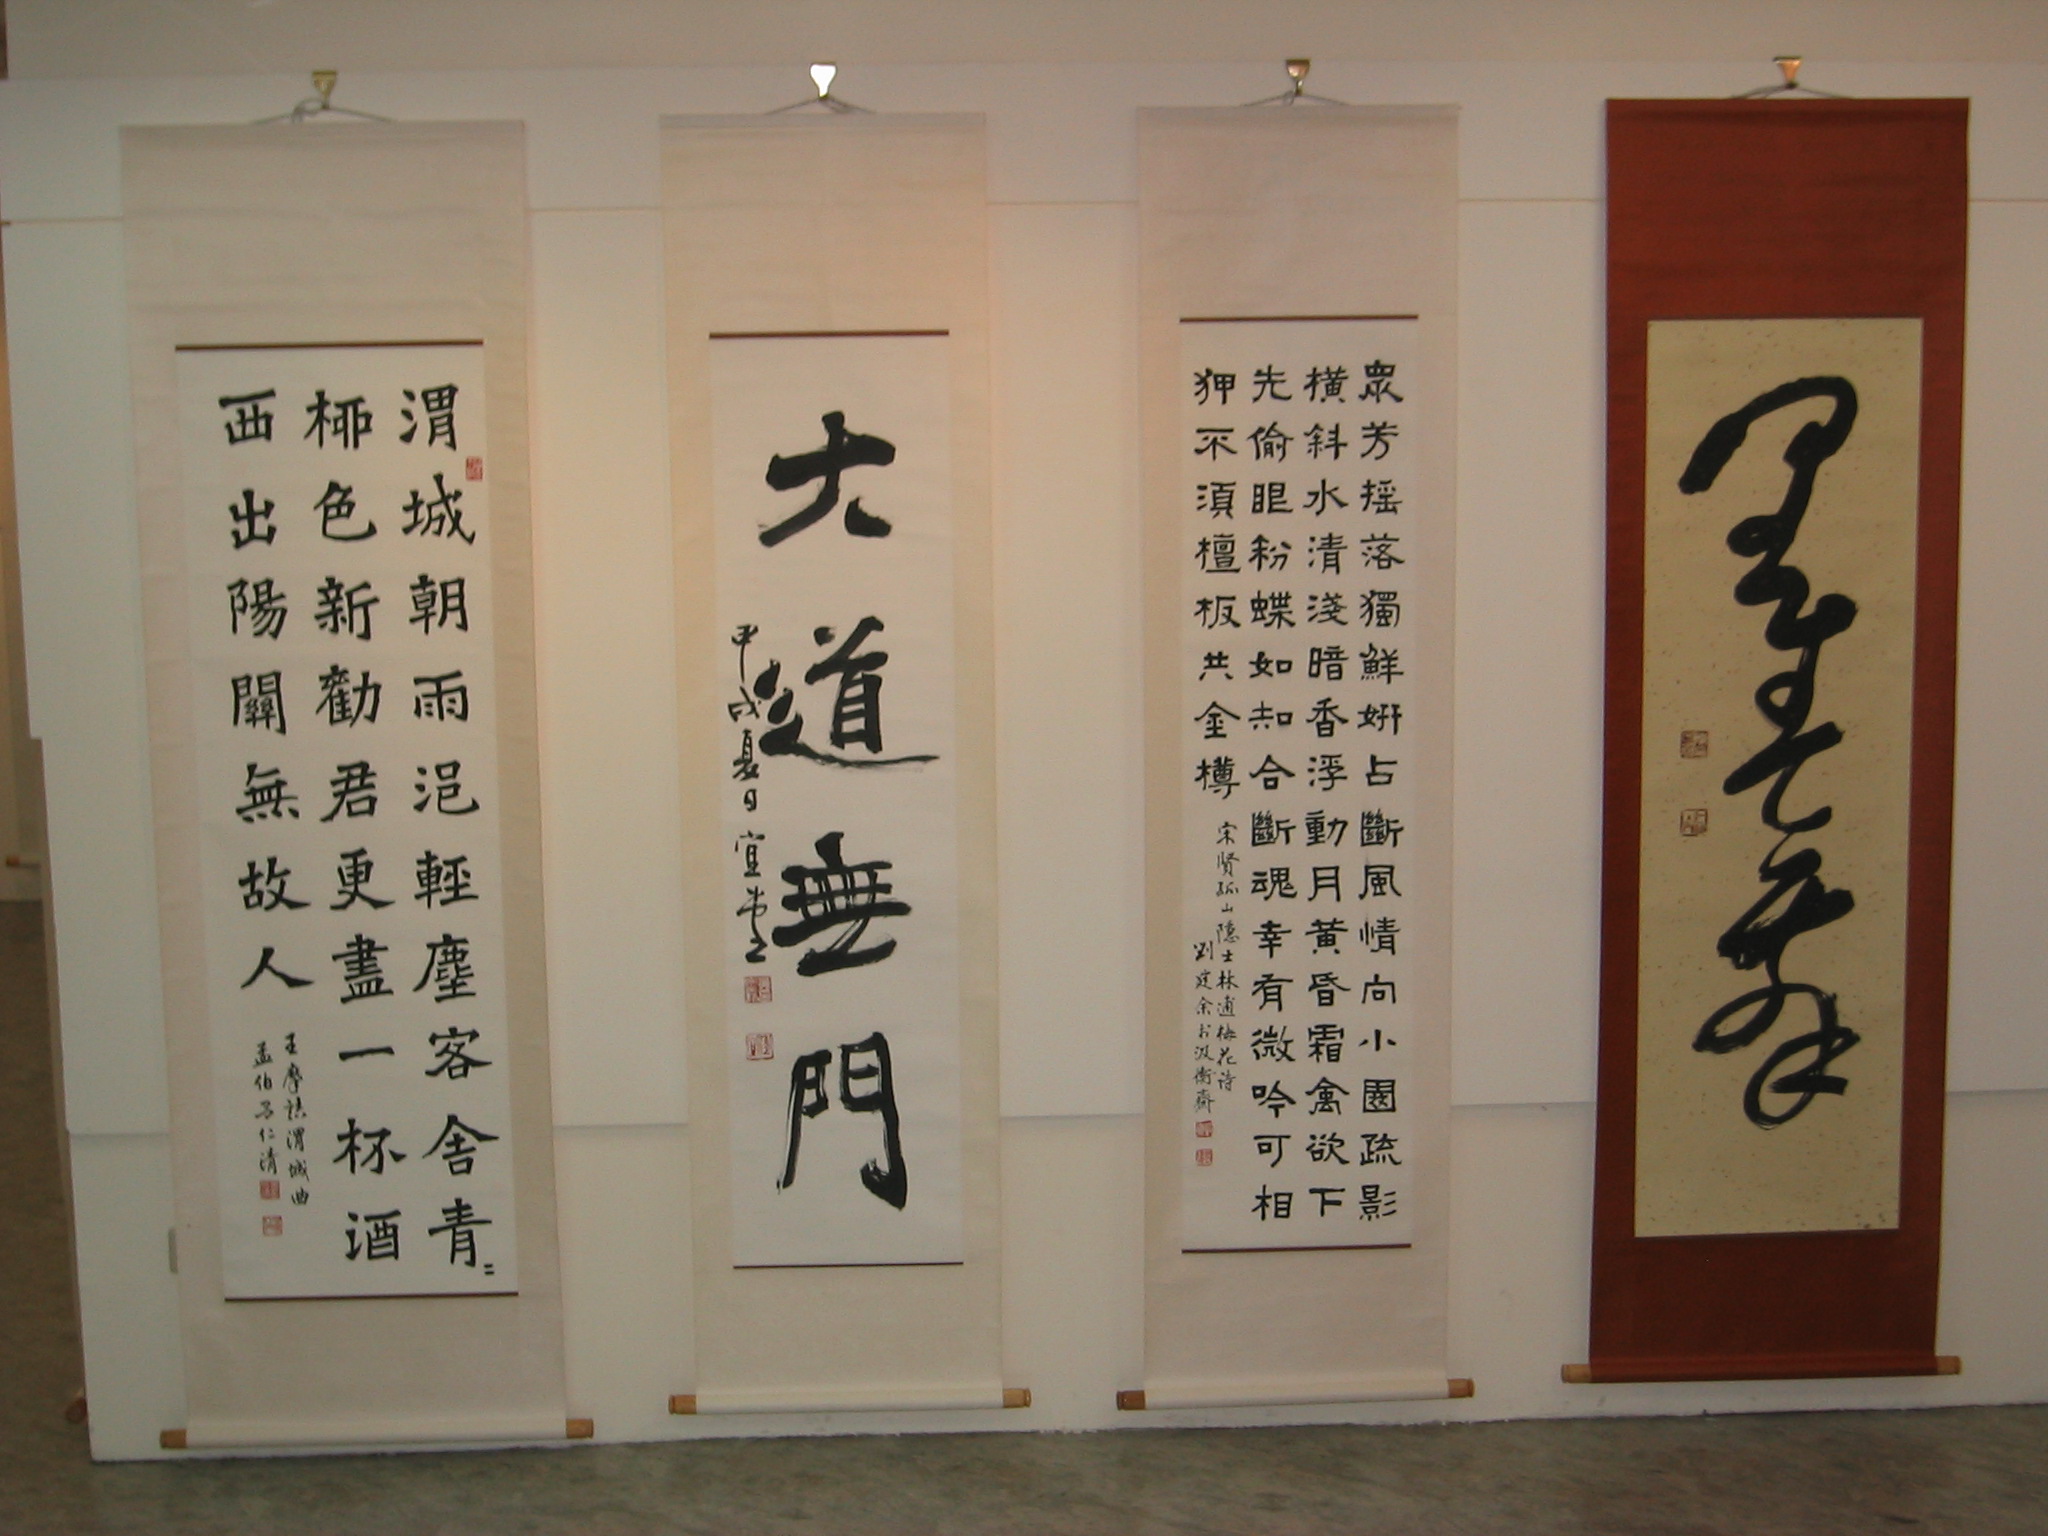 渭城朝雨浥輕塵客舍青〻
柳色新勸君更盡一杯酒
西出陽關無故人
王摩詰渭城曲
大道無門
甲戌夏日
眾芳摇落獨鮮妍占斷風情向小園疏影
橫斜水清淺暗香浮動月黃昏霜禽欲下
先偷眼粉蝶如知合斷魂幸有微吟可相
狎不須檀板共金樽
宋贤孤山隐士林逋梅花诗